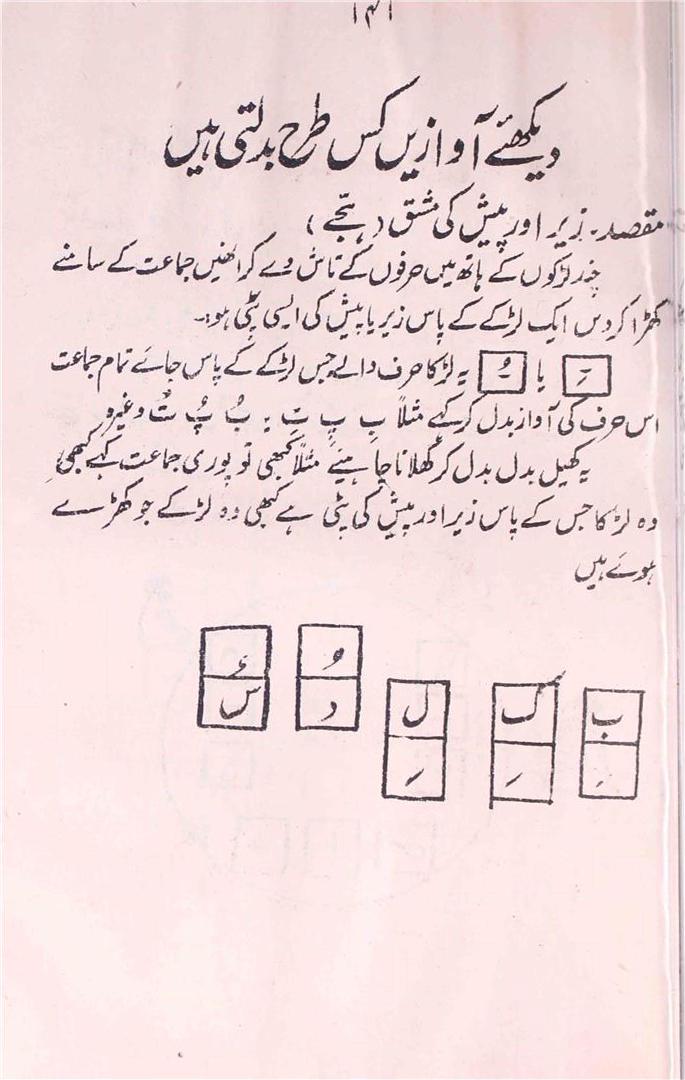 ۱۴۱
دیکھئے آوازیں کس طرح بدلتی ہیں
مقصد۔ زیر اور پیش کی مشق (ہجّے)
چند لڑکوں کے ہاتھ میں حرفوں کے تاش دے کر انھیں جماعت کے سامنے
کھڑا کر دیں ایک لڑکے کے پاس زیر یا پیش کی ایسی پٹی ہو۔
یا یہ لڑکا حرف والے جس لڑکے کے پاس جائے تمام جماعت
اس حرف کی آواز بدل کر کہے مثلاً بِ پِ تِ ۔ بُ پُ تُ وغیرہ
یہ کھیل بدل بدل کر کھلانا چاہیے مثلاً کبھی تو پوری جماعت کہے کبھی
وہ لڑکا جس کے پاس زیر اور پیش کی پٹی ہے کبھی وہ لڑکے جو کھڑے
ہوئے ہیں
ب ک ل د س